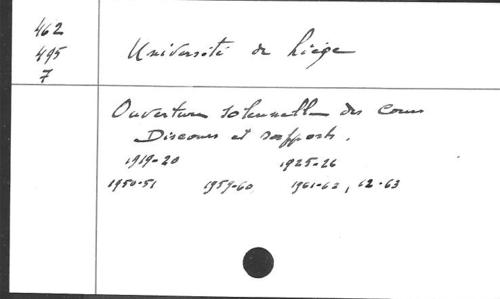 462
495
7
Université de Liège
Ouverture solennelle des cours
Discours et rapports.
1919-20 1925-26
1950-51 1959-60 1961-62, 62-63